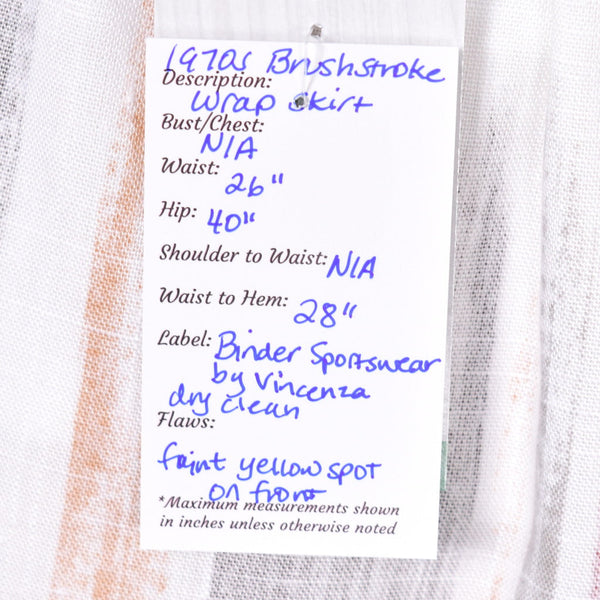 1970s Brushstroke
Description:
wrap skirt
Bust/Chest:
N/A
Waist:
26"
Hip: 40"
Shoulder to Waist: N/A
Waist to Hem: 28"
Label: Binder Sportswear
by Vincenza
dry clean
Flaws:
faint yellow spot
on front
*Maximum measurements shown
in inches unless otherwise noted